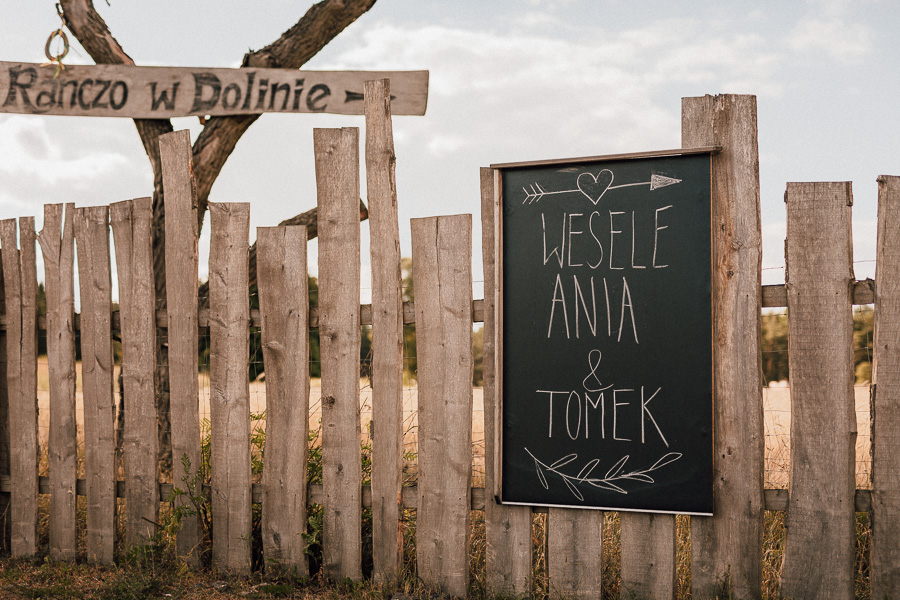 Ranczo w Dolinie
WESELE
ANIA
&
TOMEK